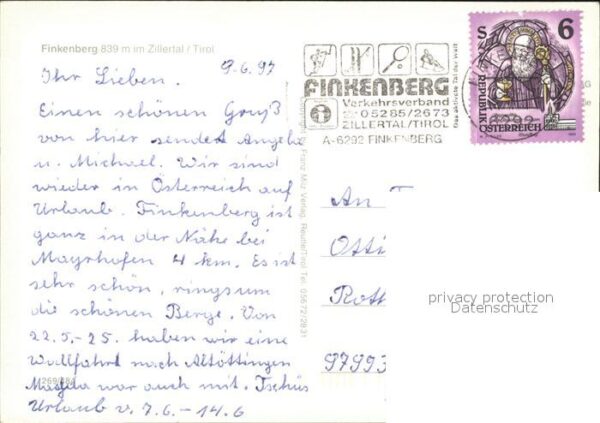 Finkenberg 839 m im Zillertal / Tirol
9.6.97
Ihr Lieben.
Einen schönen Gruß
von hier sendet Angela
u. Michael. Wir sind
wieder in Österreich auf
Urlaub. Finkenberg ist
ganz in der Nähe bei
Mayrhofen 4 km. Es ist
sehr schön, ringsum
die schönen Berge. Von
22.5.-25. haben wir eine
Wallfahrt nach Altöttingen
Magda war auch mit. Tschüs
Urlaub v. 7.6. - 14.6
FINKENBERG
Verkehrsverband
05285/2673
ZILLERTAL/TIROL
A-6292 FINKENBERG
Das aktivste Tal der Welt
Franz Milz Verlag, Reutte/Tirol Tel. 05672/2831
S 6
REPUBLIK
ÖSTERREICH
An
Otti
Rott
97993
privacy protection
Datenschutz